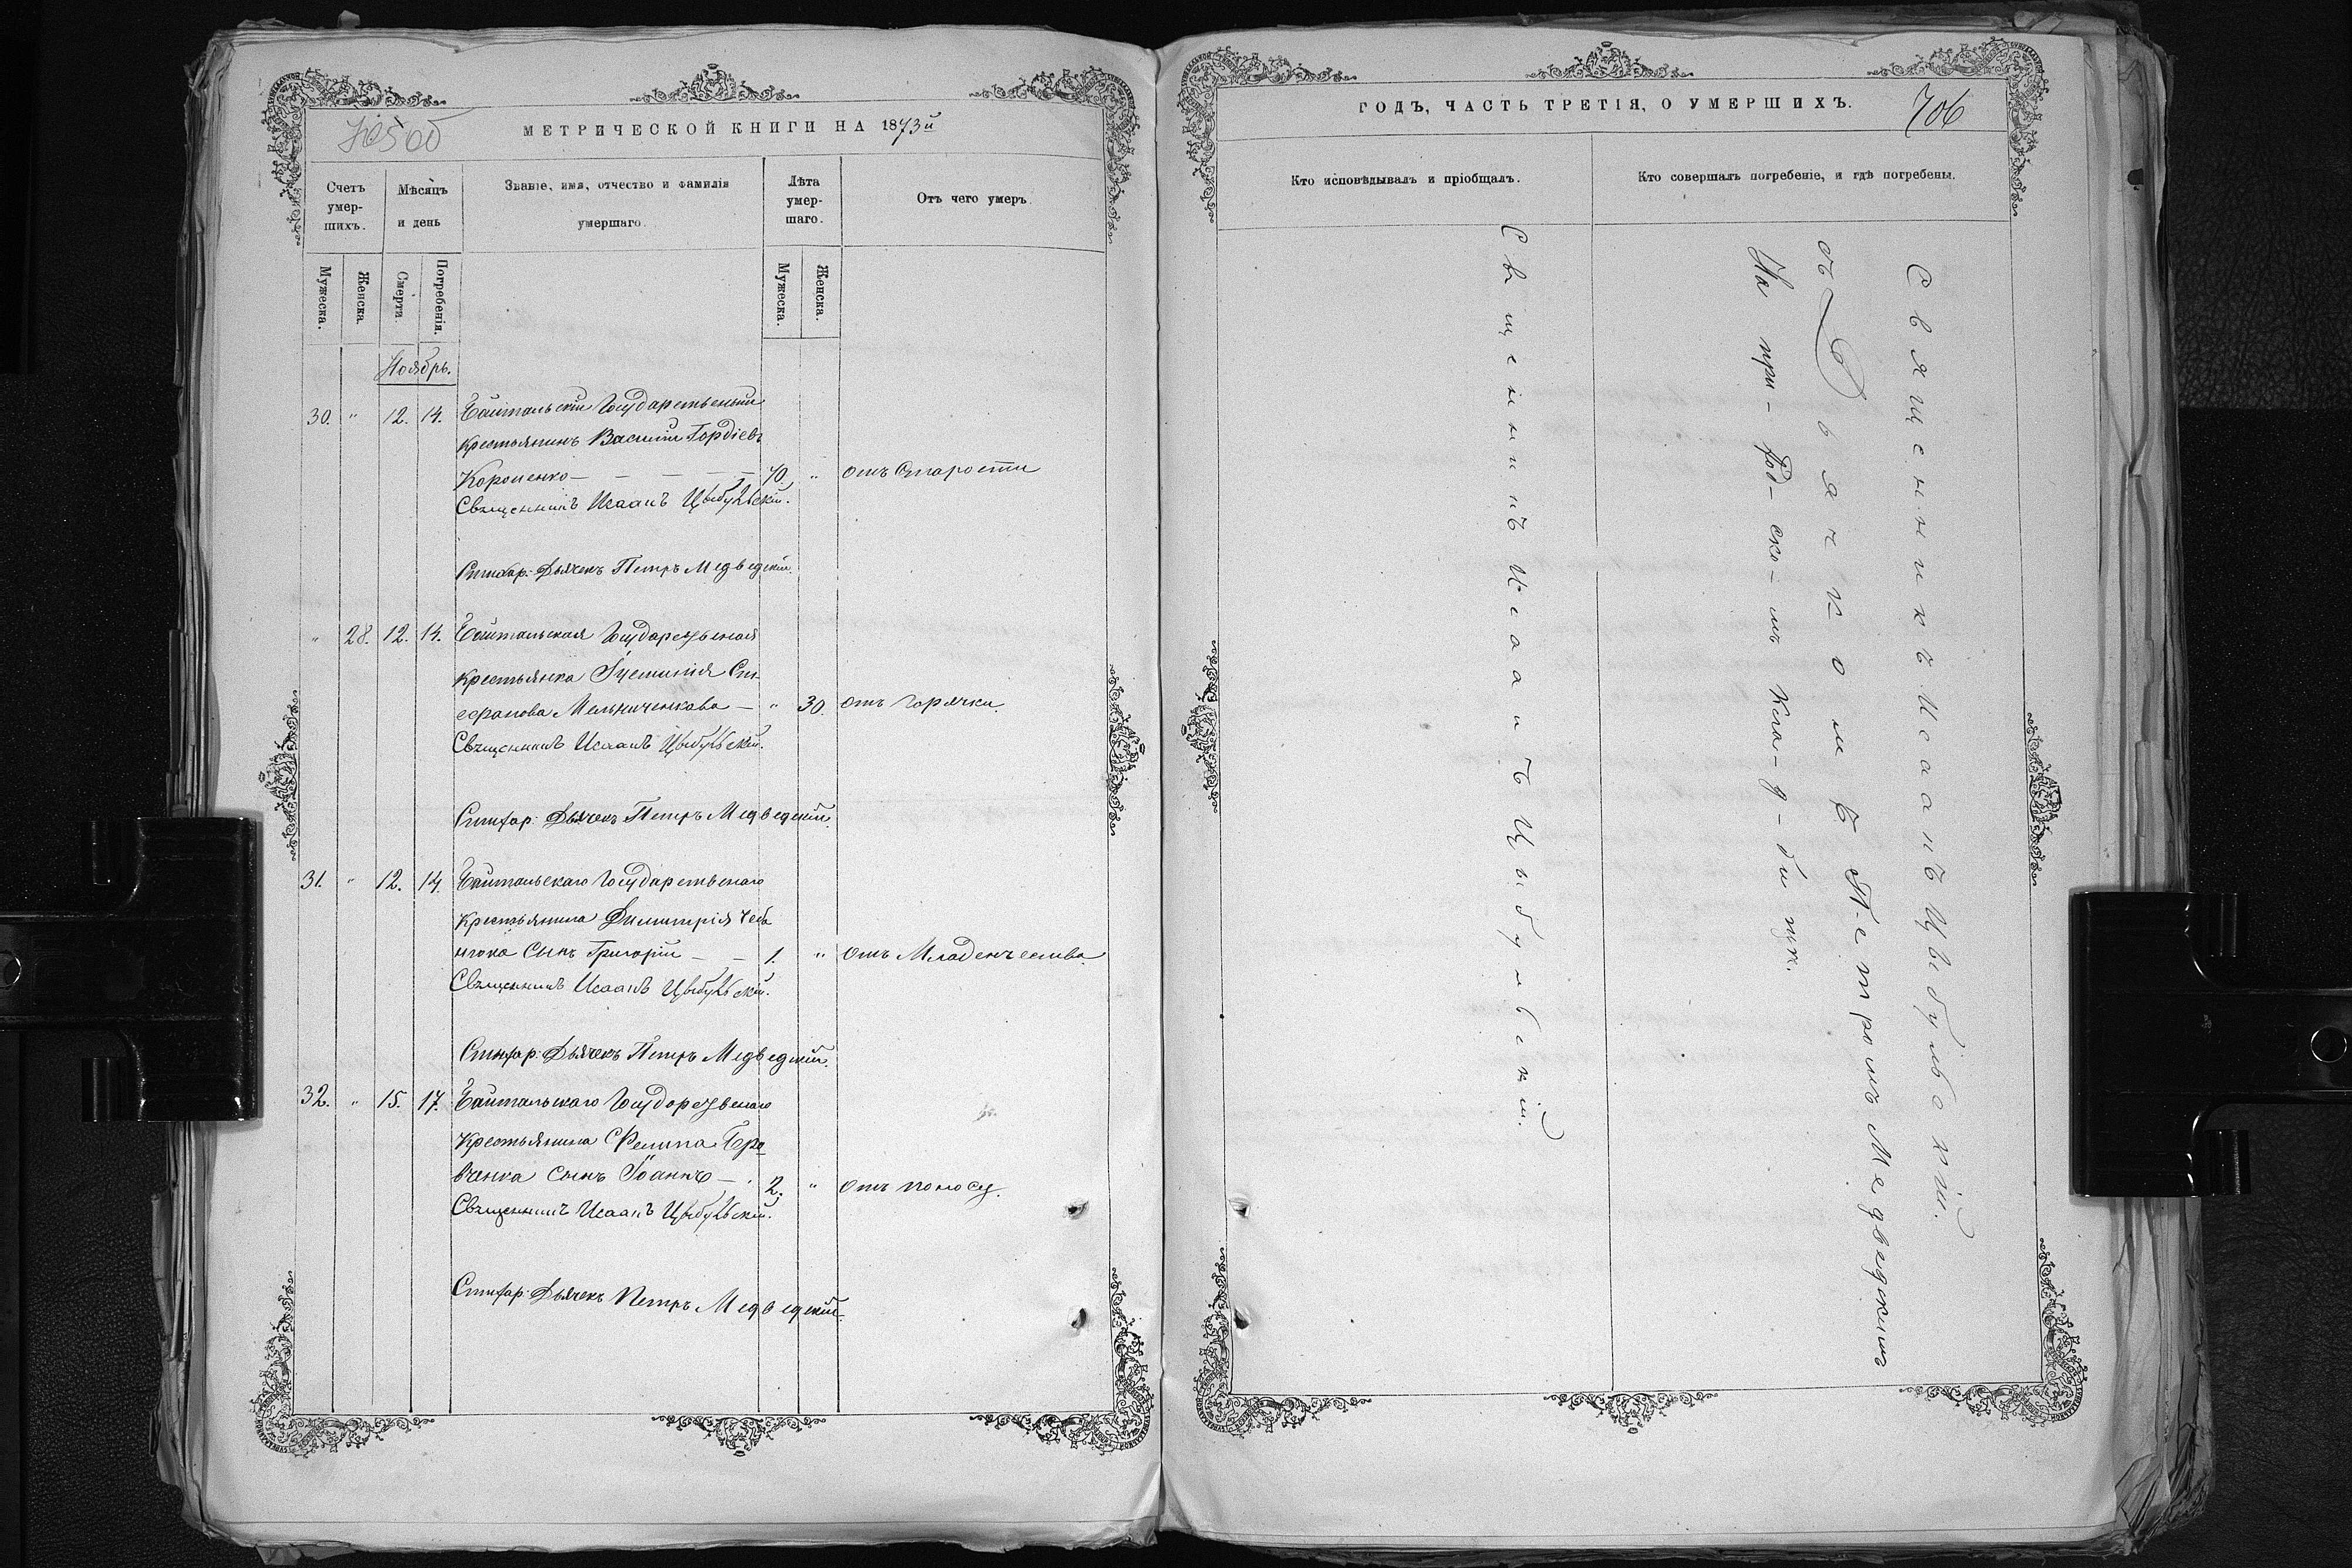 МЕТРИЧЕСКОЙ КНИГИ НА 1873й
Счетъ умер-шихъ.
Мѣсяцъ и день
Званіе, имя, отчество и фамилія умершаго.
Лѣта умер-шаго.
Отъ чего умеръ.
Мужеска.
Женска.
Смерти.
Погребенія.
Мужеска.
Женска.
Ноябрь.
30. " 12. 14. Байтальскій Государственный
крестьянинъ Василій Гордіевъ
Короленко — — — — — 70. " отъ Старости
Священникъ Исаакъ Цыбульскій.
Стихар: Дьячекъ Петръ Медведскій.
" 28. 12. 14. Байтальская Государственая
крестьянка Іустинія
Мельниченкова — " 30. отъ горячки.
Священникъ Исаакъ Цыбульскій.
Стихар: Дьячекъ Петръ Медведскій.
31. " 12. 14. Байтальскаго Государственаго
крестьянина Димитрія Чеба
нюка Сынъ Григорій — — 1. " отъ Младенчества.
Священникъ Исаакъ Цыбульскій.
Стихар: Дьячекъ Петръ Медведскій.
32. " 15. 17. Байтальскаго Государственаго
Крестьянина
сынъ Іоаннъ — 2. " отъ поносу.
Священникъ Исаакъ Цыбульскій.
Стихар: Дьячекъ Петръ Медведскій.
ГОДЪ, ЧАСТЬ ТРЕТІЯ, О УМЕРШИХЪ.
706
Кто исповѣдывалъ и пріобщалъ.
Кто совершалъ погребеніе, и гдѣ погребены.
Священникъ Исаакъ Цыбульскій.
Священникъ Исаакъ Цыбульскій.
съ Дьячкомъ Петромъ Медведскимъ
На при-ход-ско-мъ Кла-д-би щѣ.